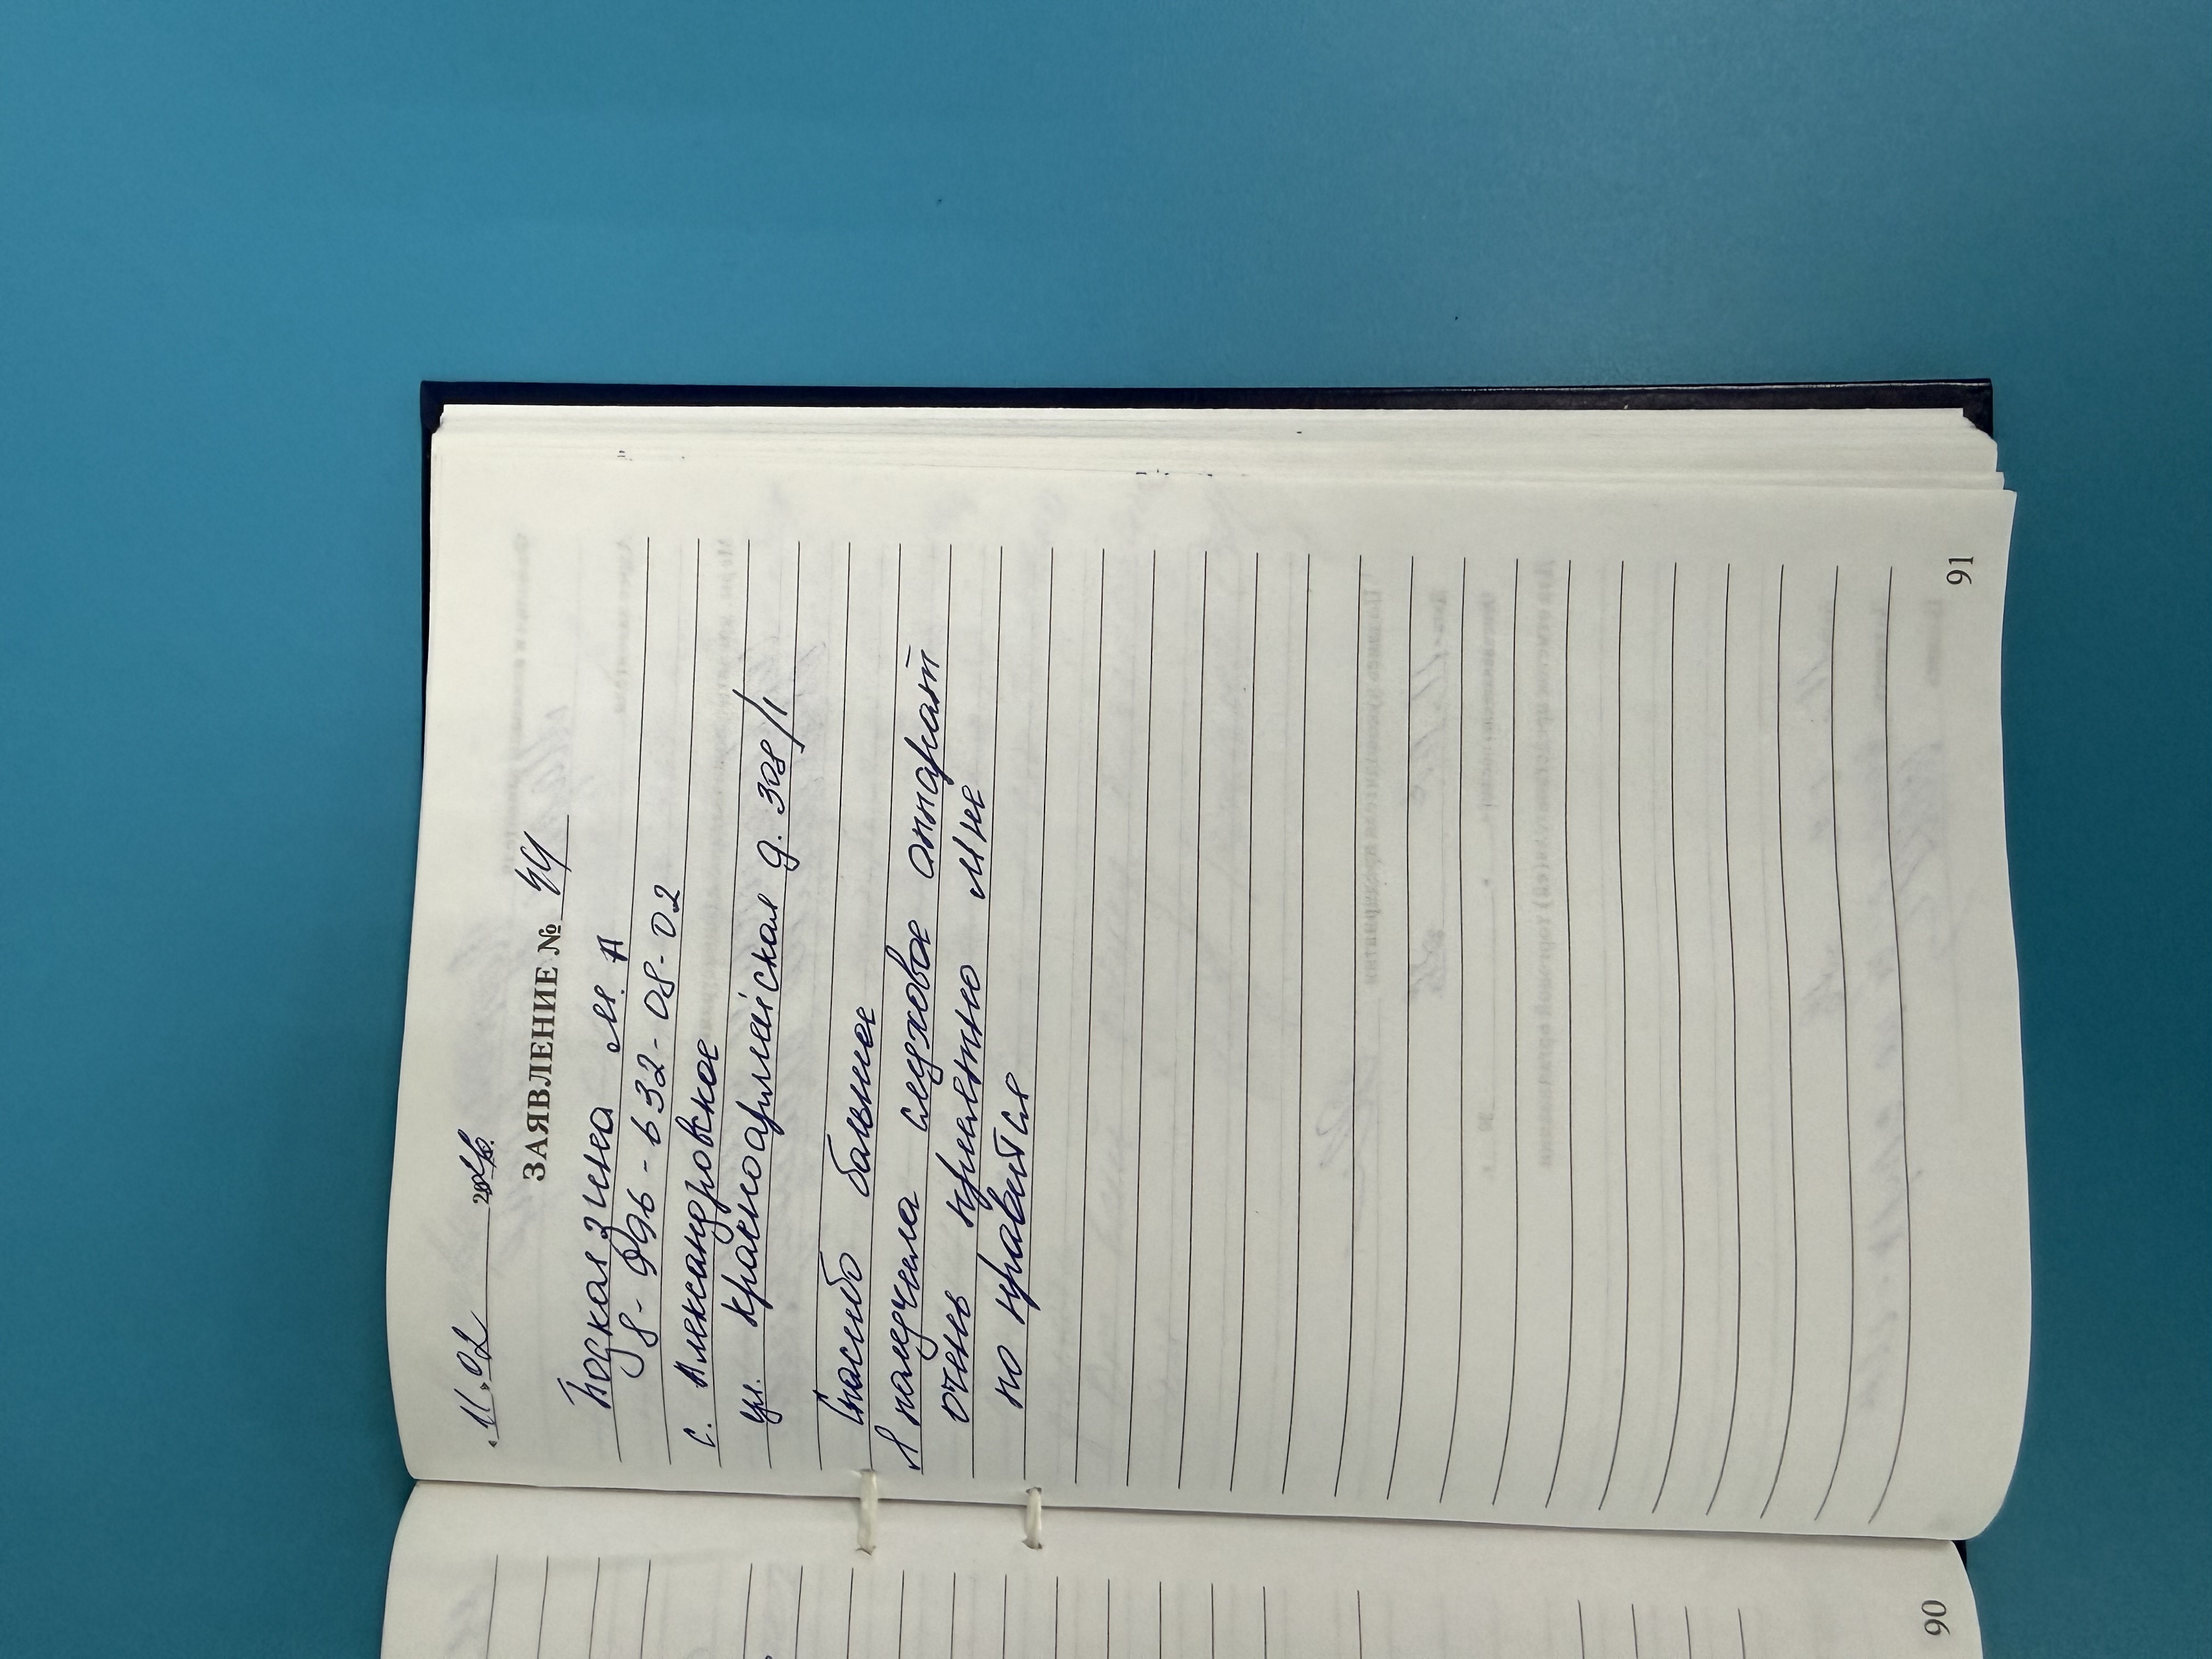 „11„ 02 2026.
ЗАЯВЛЕНИЕ № 44
Подколзина М. А
8-996-632-08-02
с. Александровское
ул. Красноармейская д. 308/1
Спасибо балшее
Я получила слуховое аппарат
очень приметно мне
по нравится
91
90